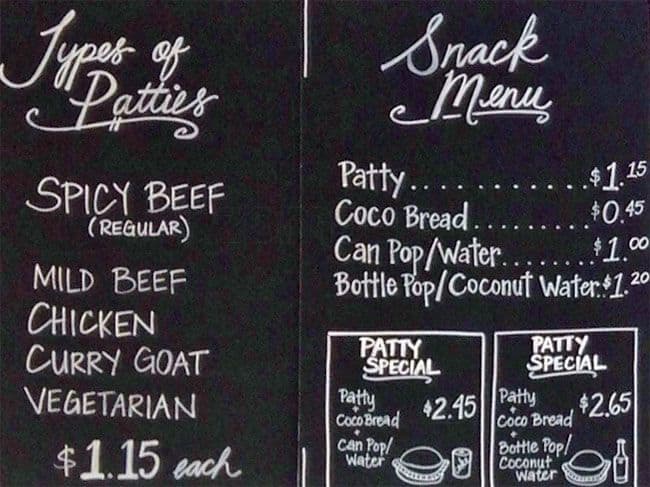 Types of
Patties
SPICY BEEF
(REGULAR)
MILD BEEF
CHICKEN
CURRY GOAT
VEGETARIAN
$1.15 each
Snack
Menu
Patty............$1.15
Coco Bread.........$0.45
Can Pop/Water........$1.00
Bottle Pop/Coconut Water..$1.20
PATTY
SPECIAL
Patty
+
Coco Bread
+
Can Pop/
Water
$2.45
PATTY
SPECIAL
Patty
+
Coco Bread
+
Bottle Pop/
Coconut
Water
$2.65